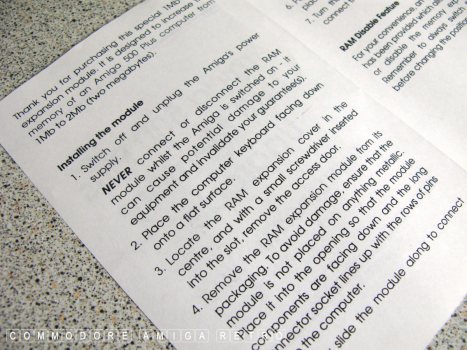 Thank you for purchasing this special 1MB
expansion module. It is designed to increase
memory of an Amiga 500 Plus computer from
1Mb to 2Mb (two megabytes).
Installing the module
1. Switch off and unplug the Amiga's power
supply.
NEVER connect or disconnect the RAM
module whilst the Amiga is switched on - it
can cause potential damage to your
equipment and invalidate your guarantee(s).
2. Place the computer keyboard facing down
onto a flat surface.
3. Locate the RAM expansion cover in the
centre, and with a small screwdriver inserted
into the slot, remove the access door.
4. Remove the RAM expansion module from its
packaging. To avoid damage, ensure that the
module is not placed on anything metallic.
place it into the opening so that the module
components are facing down and the long
connector socket lines up with the rows of pins
the computer.
slide the module along to connect
7. Turn
connect
RAM Disable Feature
For your convenience, an
has been provided which
or disable the memory exp
Remember to always switch
before changing the position
COMMODORE AMIGA RETRO